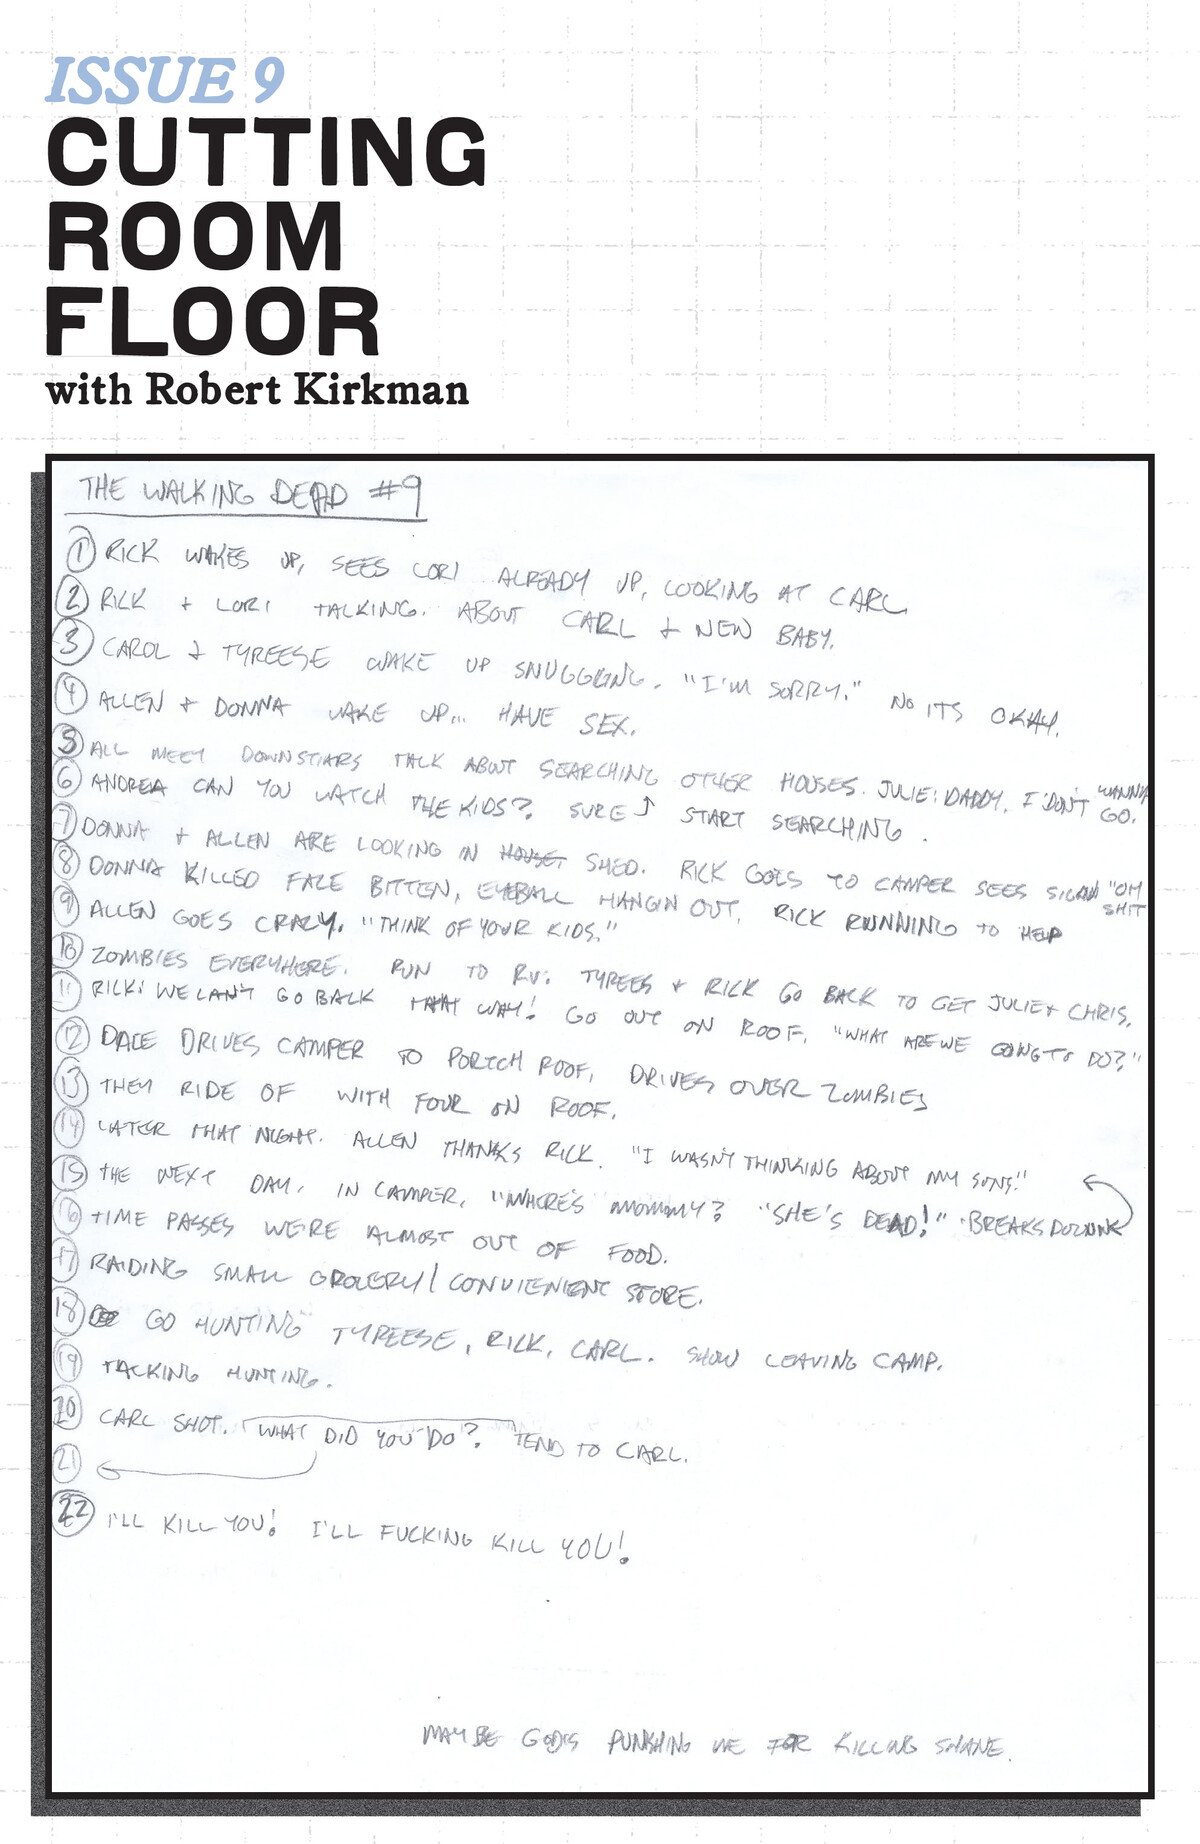 ISSUE 9
CUTTING
ROOM
FLOOR
with Robert Kirkman
THE WALKING DEAD #9
1 RICK WAKES UP, SEES LORI ALREADY UP, LOOKING AT CARL
2 RICK + LORI TALKING. ABOUT CARL + NEW BABY.
3 CAROL + TYREESE WAKE UP SNUGGLING. "I'M SORRY." NO ITS OKAY.
4 ALLEN + DONNA WAKE UP... HAVE SEX.
5 ALL MEET DOWNSTIARS TALK ABOUT SEARCHING OTHER HOUSES. JULIE: DADDY, I DON'T WANNA GO.
6 ANDREA CAN YOU WATCH THE KIDS? SURE ↑ START SEARCHING.
7 DONNA + ALLEN ARE LOOKING IN HOUSE SHED. RICK GOES TO CAMPER SEES SIGN "OH SHIT
8 DONNA KILLED FACE BITTEN, EYEBALL HANGIN OUT. RICK RUNNING TO HELP
9 ALLEN GOES CRAZY. "THINK OF YOUR KIDS."
10 ZOMBIES EVERYHERE. RUN TO RV. TYREES + RICK GO BACK TO GET JULIE + CHRIS.
11 RICK: WE CAN'T GO BACK THAT WAY! GO OUT ON ROOF. "WHAT ARE WE GOING TO DO?"
12 DALE DRIVES CAMPER TO PORTCH ROOF. DRIVES OVER ZOMBIES
13 THEY RIDE OF WITH FOUR ON ROOF.
14 LATER THAT NIGHT. ALLEN THANKS RICK. "I WASN'T THINKING ABOUT MY SONS."
15 THE NEXT DAY. IN CAMPER. "WHERE'S MOMMY? "SHE'S DEAD!" BREAKS DOWN
16 TIME PASSES WE'RE ALMOST OUT OF FOOD.
17 RAIDING SMALL GROCERY/CONVIENIENT STORE.
18 GO HUNTING TYREESE, RICK, CARL. SHOW LEAVING CAMP.
19 TALKING HUNTING.
20 CARL SHOT. WHAT DID YOU DO? TEND TO CARL.
21
22 I'LL KILL YOU! I'LL FUCKING KILL YOU!
MAYBE GOD IS PUNSHING ME FOR KILLING SHANE.